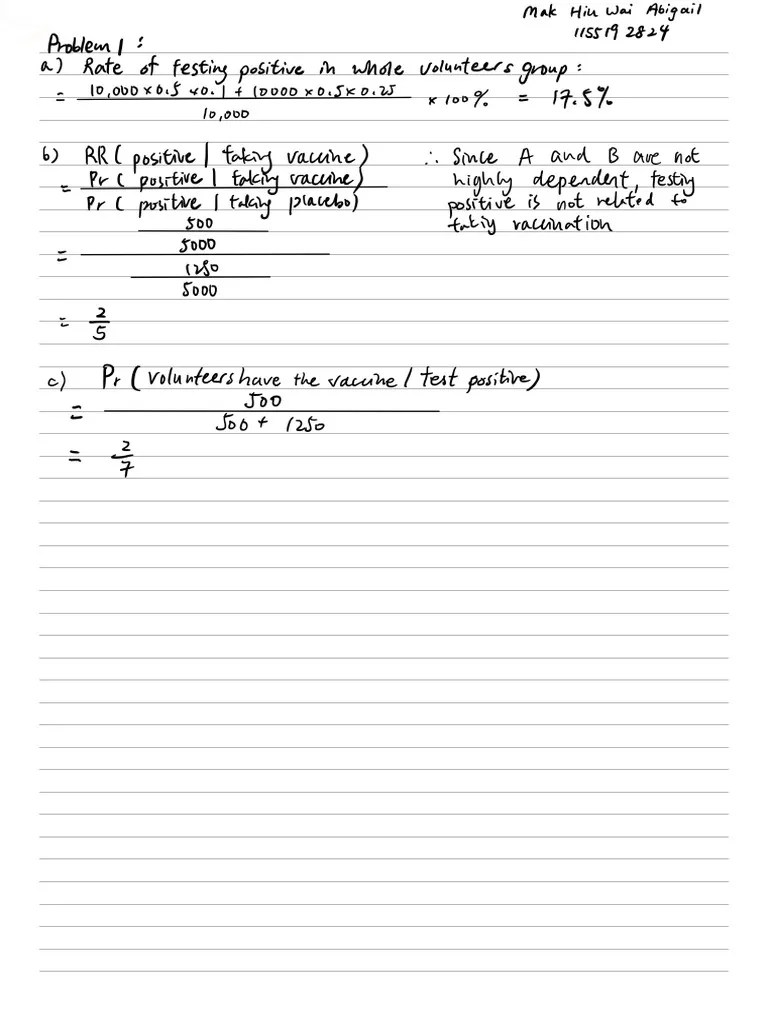 Mak Hiu Wai Abigail
1155192824
Problem 1 :
a) Rate of testing positive in whole volunteers group :
= 10,000 × 0.5 × 0.1 + 10000 × 0.5 × 0.25 / 10,000 × 100% = 17.5%
b) RR ( positive | taking vaccine )
= Pr ( positive | taking vaccine ) / Pr ( positive | taking placebo )
= 500 / 5000 / 1250 / 5000
= 2/5
∴ Since A and B are not
highly dependent, testing
positive is not related to
taking vaccination
c) Pr ( volunteers have the vaccine | test positive )
= 500 / 500 + 1250
= 2/7